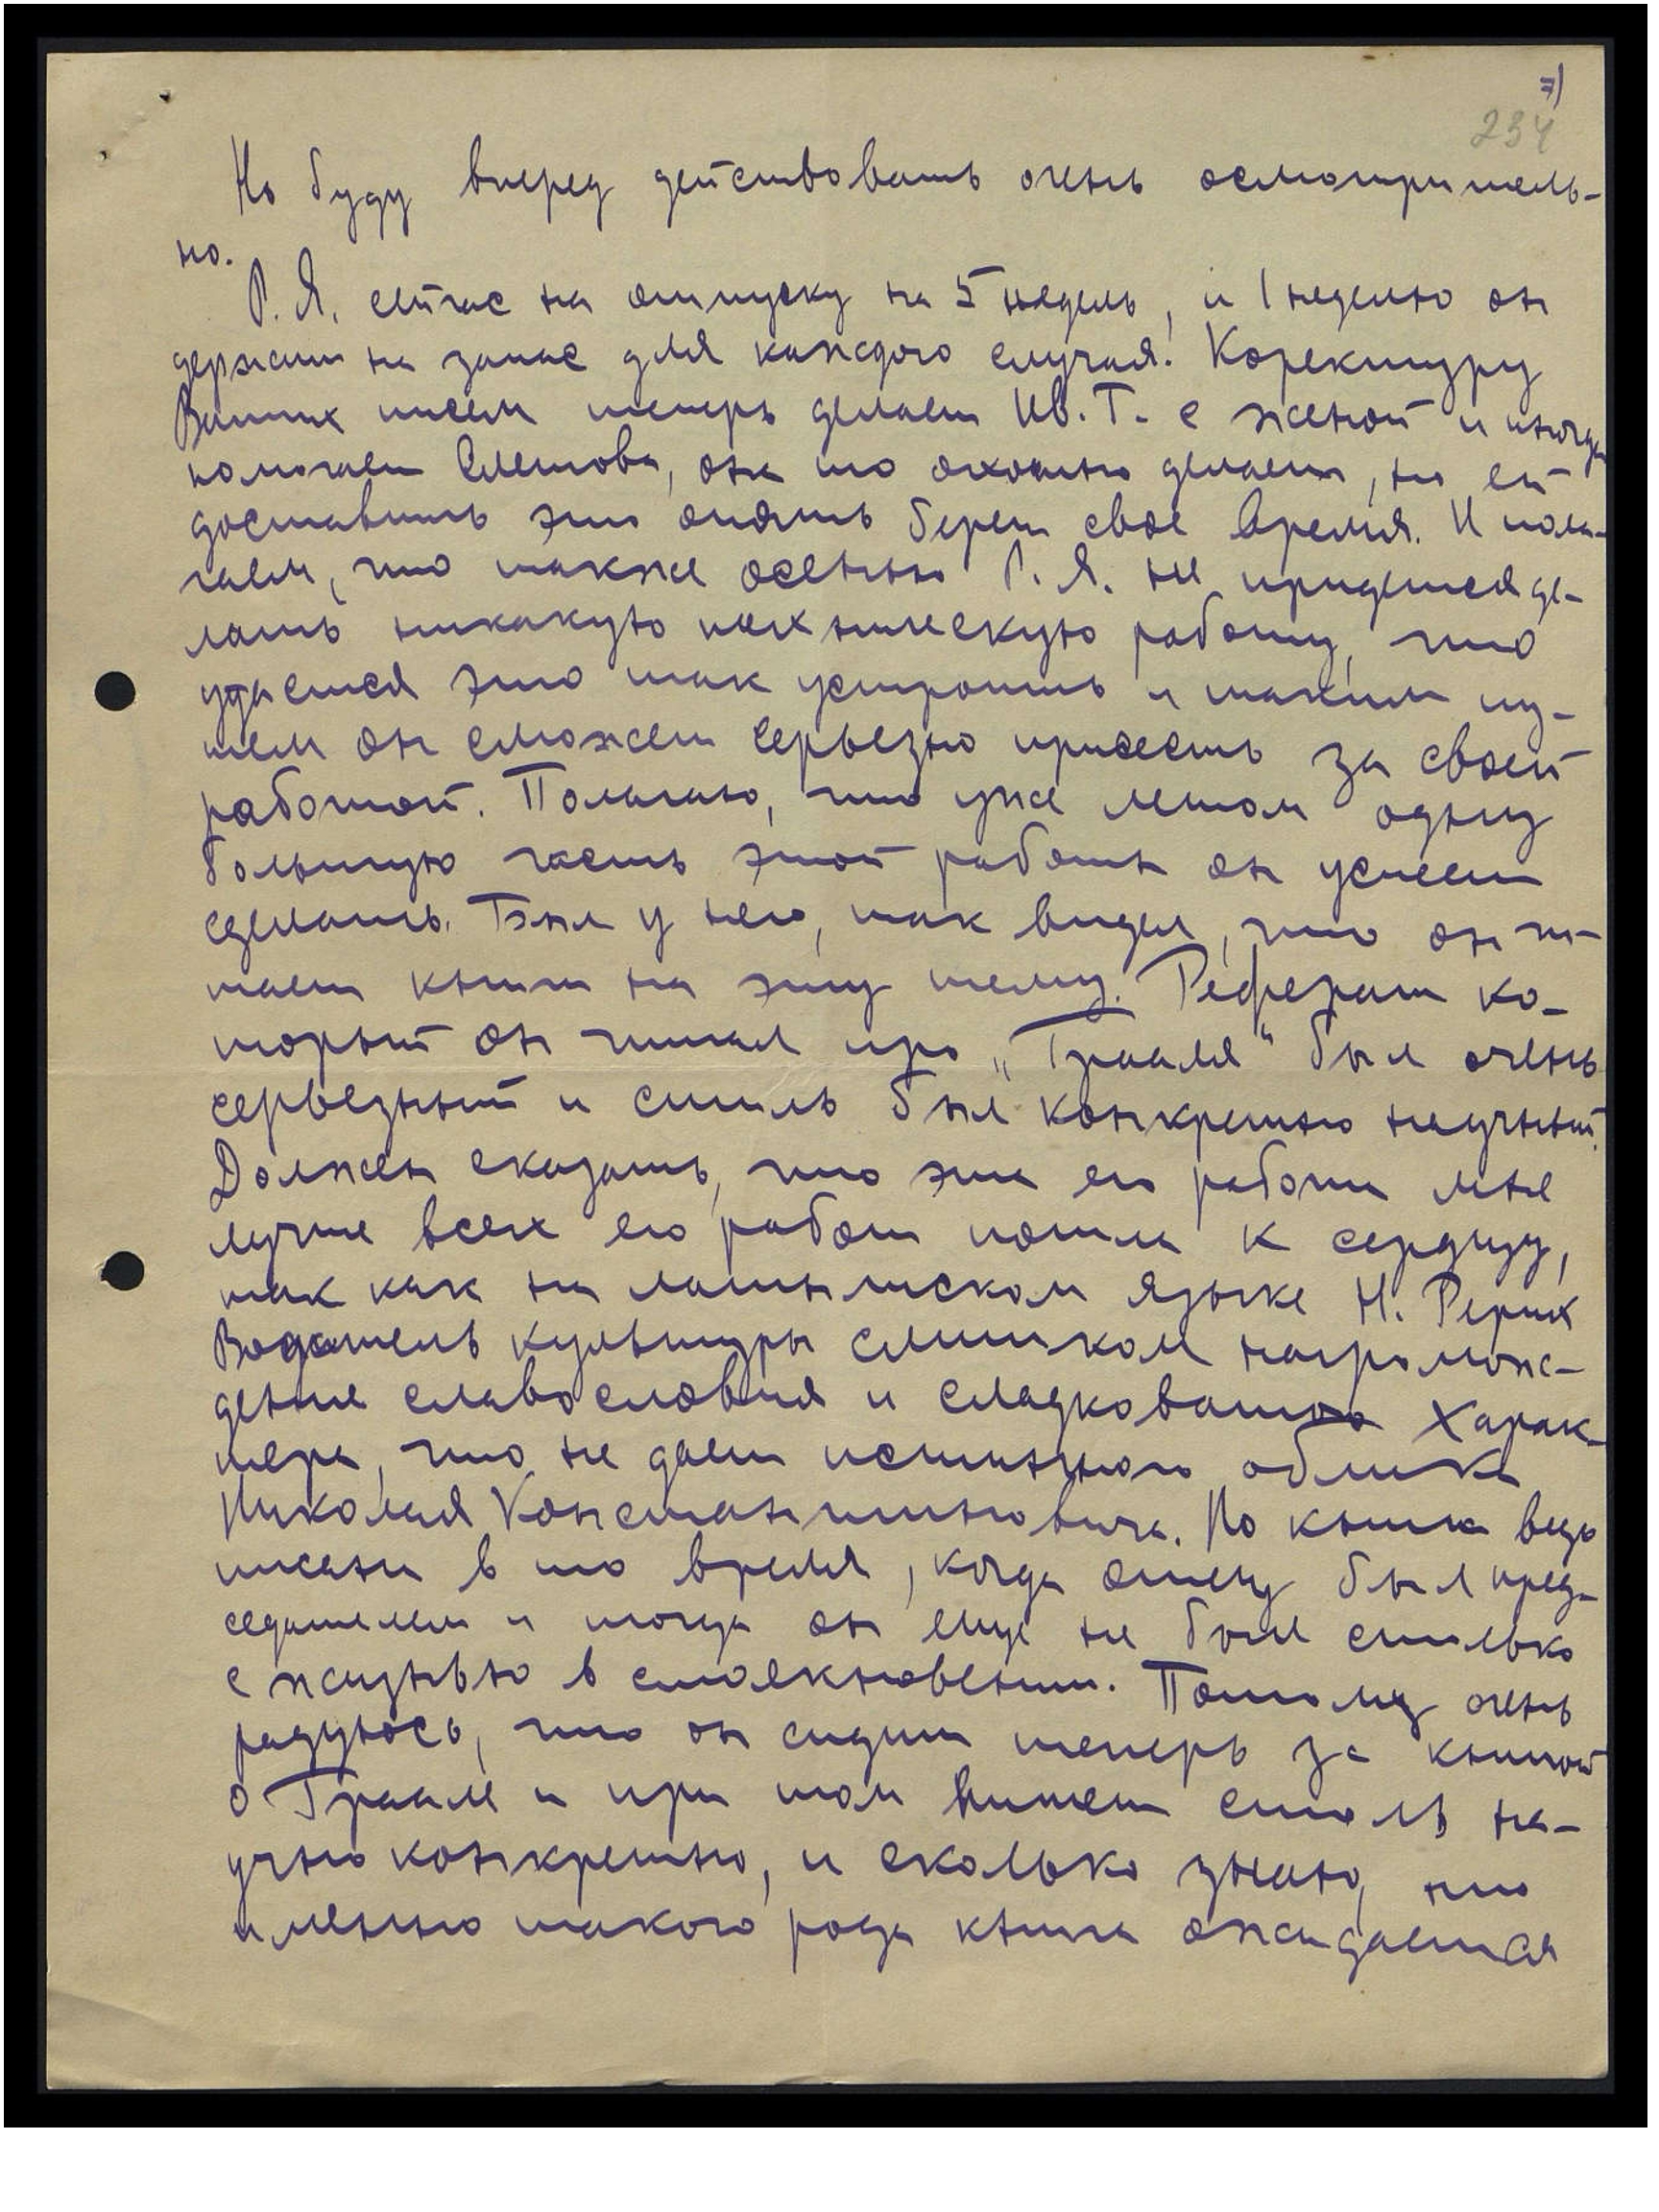 7)
234
Но буду вперед действовать очень осмотритель-
но.
Р. Я. сейчас на отпуску на 5 недель, и 1 неделю он
держит на запас для каждого случая. Коректуру
Ваших писем теперь делает Ив. Г. с женой и иногда
помогает, она то охотно делает, но ей
доставить это опять берет свое время. И пола-
гаем, что также осенью Р. Я. не придется де-
лать никакую техническую работу, что
удастся это так устроить и таким пу-
тем он сможет серьезно присесть за своей
работой. Полагаю, что уже летом одну
большую часть этой работы он успеет
сделать. Был у него, так видел, что он чи-
тает книги на эту тему. Реферат ко-
торый он читал про „Грааля" был очень
серьезный и стиль был конкретно научный.
Должен сказать, что эти его работы мне
лучше всех его работ пошли к сердцу,
так как на латышском языке Н. Рерих
Водитель культуры слишком нагромож-
дение славословия и сладковатого харак-
тера, что не дает истинного облика
Николая Константиновича. Но книга ведь
писана в то время, когда отец был пред-
седателем и тогда он еще не был столько
с жизнью в столкновении. Потому очень
радуюсь, что он сидит теперь за книгой
о Граале и при том пишет столь на-
учно конкретно, и сколько знаю, что
именно такого рода книга ожидается